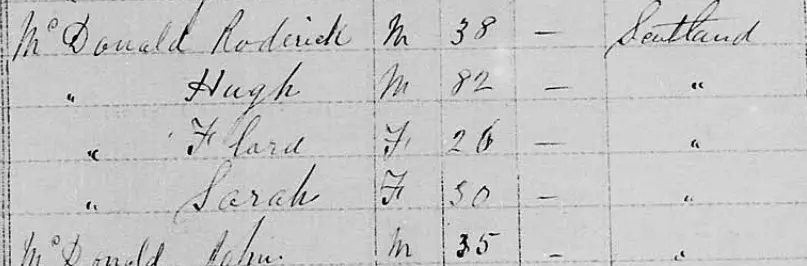 McDonald Roderick M 38 — Scotland
" Hugh M 82 — "
" Flord F 26 — "
" Sarah F 30 — "
McDonald John M 35 — "